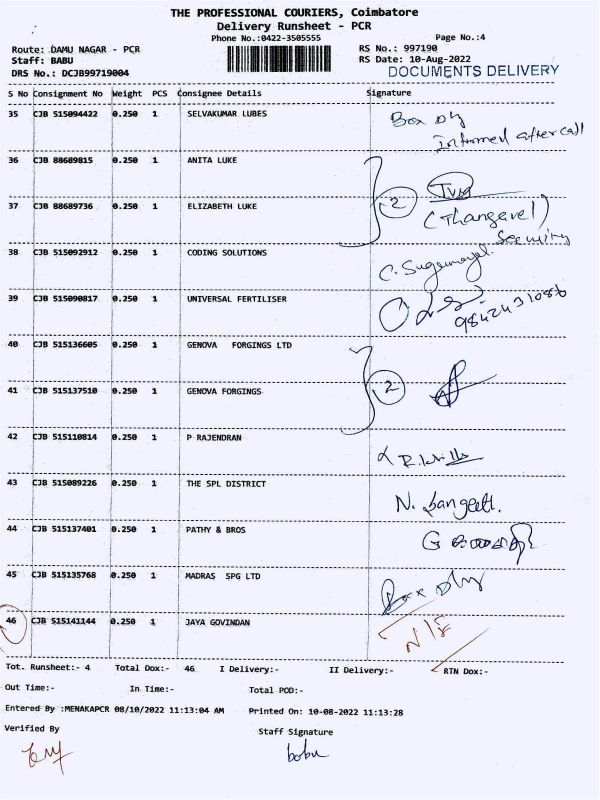 THE PROFESSIONAL COURIERS, Coimbatore
Delivery Runsheet - PCR
Phone No.:0422-3505555
Page No.:4
Route: DAMU NAGAR - PCR
RS No.: 997190
Staff: BABU
RS Date: 10-Aug-2022
DRS No.: DCJB99719004
DOCUMENTS DELIVERY
S No Consignment No Weight PCS Consignee Details Signature
35 CJB 515094422 0.250 1 SELVAKUMAR LUBES Box Dly
Informed after call
36 CJB 88689815 0.250 1 ANITA LUKE
2
37 CJB 88689736 0.250 1 ELIZABETH LUKE (Thangavel)
Security
38 CJB 515092912 0.250 1 CODING SOLUTIONS
39 CJB 515090817 0.250 1 UNIVERSAL FERTILISER
9842431086
40 CJB 515136605 0.250 1 GENOVA FORGINGS LTD
2
41 CJB 515137510 0.250 1 GENOVA FORGINGS
42 CJB 515110814 0.250 1 P RAJENDRAN
43 CJB 515089226 0.250 1 THE SPL DISTRICT N. Sangeett.
44 CJB 515137401 0.250 1 PATHY & BROS
45 CJB 515135768 0.250 1 MADRAS SPG LTD Box Dly
46 CJB 515141144 0.250 1 JAYA GOVINDAN N/S
Tot. Runsheet:- 4 Total Dox:- 46 I Delivery:- II Delivery:- RTN Dox:-
Out Time:- In Time:- Total POD:-
Entered By :MENAKAPCR 08/10/2022 11:13:04 AM Printed On: 10-08-2022 11:13:28
Verified By
Staff Signature
babu